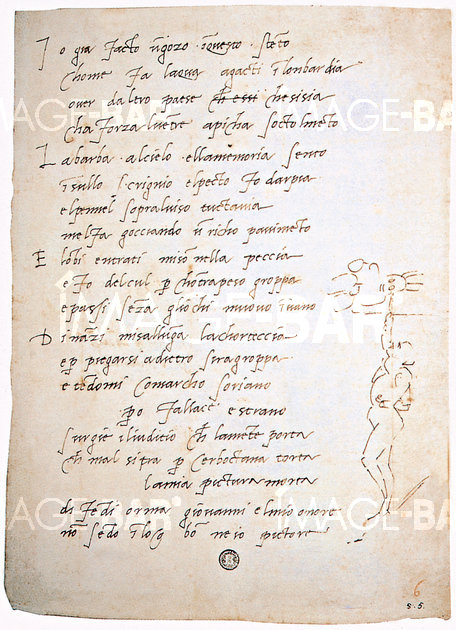 I o gia facto ñgozo ĩquesto steto
chome fa lacqua agacti ĩ lonbardia
over daltro paese ch essi chesisia
cha forza luētre apicha socto lmēto
L a barba alcielo ellamemoria sento
ĩsullo scrignio elpecto fo darpia
elpennel sopraluiso tuctavia
melfa gocciando ũ richo pavimēto
E lobi entrati misō nella peccia
e fo delcul p chōtrapeso groppa
epassi sēza gliochi muovo ĩvano
D inãzi misalluga lachorteccia
ep piegarsi adietro siragroppa
e tēdomi comarcho soriano
po fallace e strano
surgie iliudicio ch lamēte porta
ch mal si tra p cerboctana torta
lamia pictura morta
difēdi orma giovanni elmio onore
nō sēdo ĩ loq bō ne io pictore
IMAGE-BAR
6
8.5.